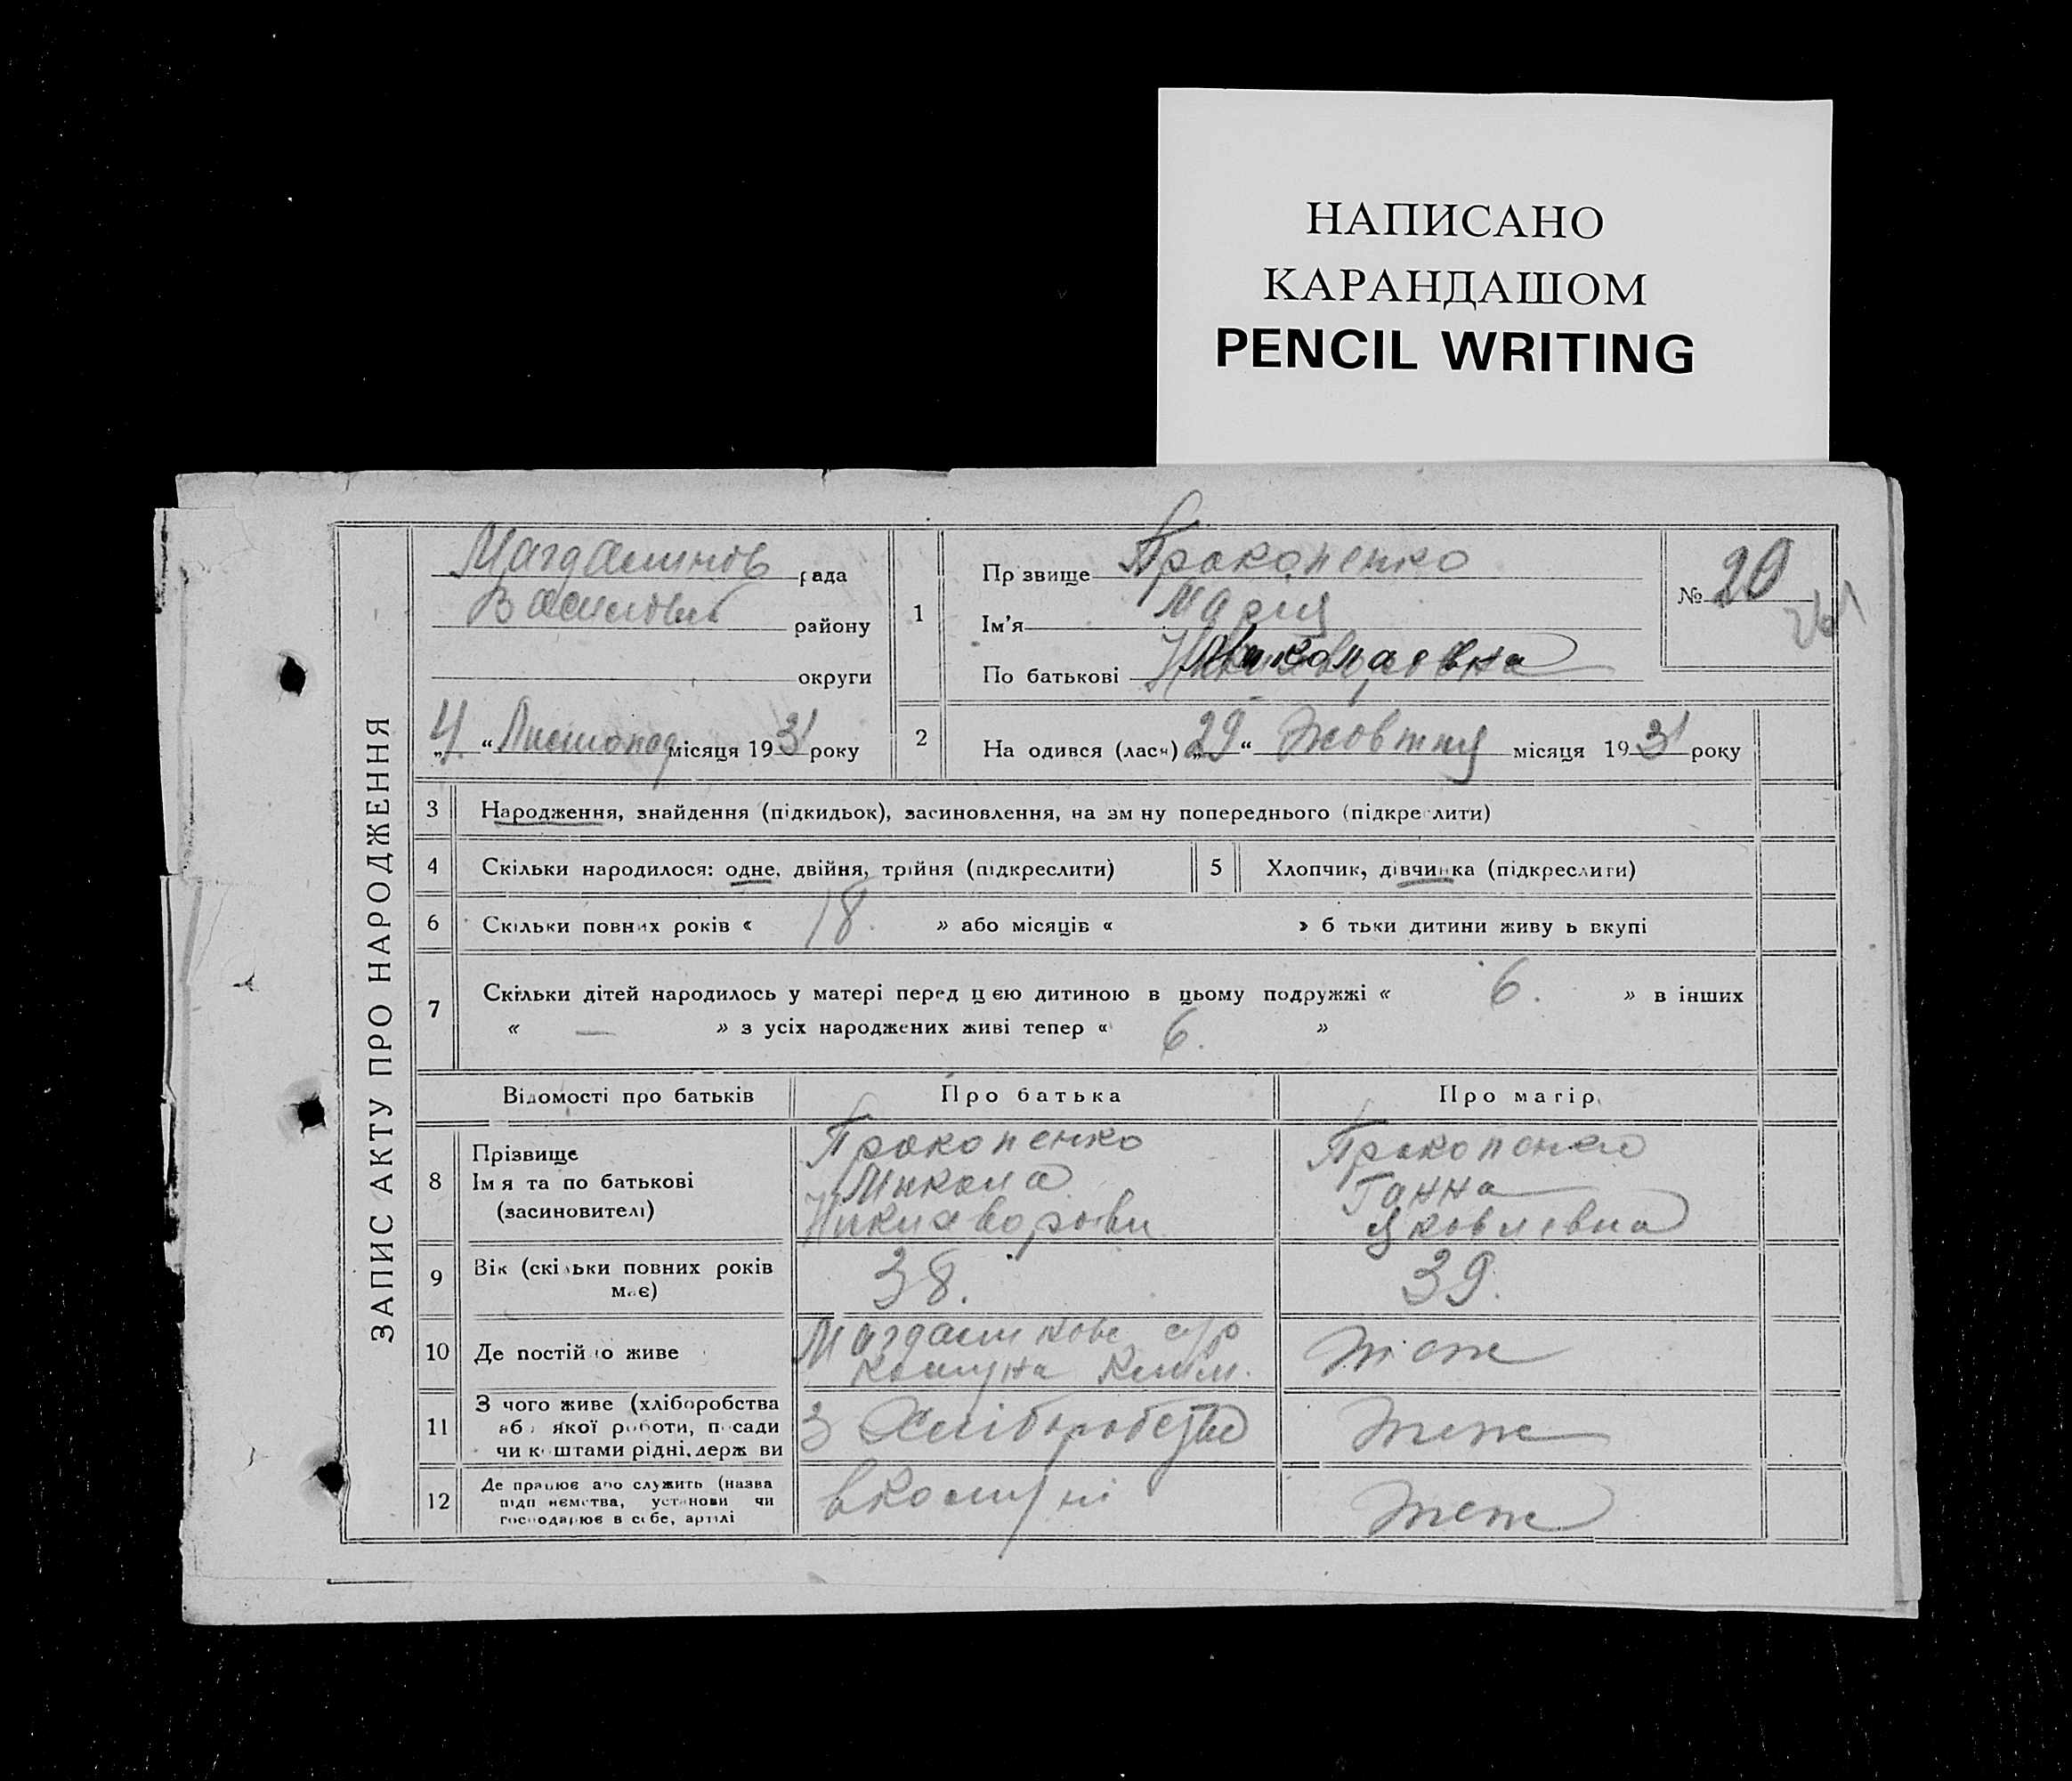 НАПИСАНО
КАРАНДАШОМ
PENCIL WRITING
ЗАПИС АКТУ ПРО НАРОДЖЕННЯ
Магдалинов рада
району
округи
„4“ Листопад місяця 1931 року
1
Пр звище Прокопенко
Ім'я Марія
По батькові Николаевна
№ 20
261
2
На одився (лася) „29“ Жовтня місяця 1931 року
3 Народження, знайдення (підкидьок), засиновлення, на зм ну попереднього (підкреслити)
4 Скільки народилося: одне, двійня, трійня (підкреслити)
5 Хлопчик, дівчинка (підкреслити)
6 Скільки повних років « 18. » або місяців « » б тьки дитини живу ь вкупі
7 Скільки дітей народилось у матері перед цією дитиною в цьому подружжі « 6. » в інших
« — » з усіх народжених живі тепер « 6. »
Відомості про батьків Про батька Про матір
8 Прізвище
Імя та по батькові
(засиновителі)
Прокопенко
Микола
Никифорови
Прокопенко
Ганна
Яковлевна
9 Вік (скільки повних років
має)
38.
39.
10 Де постійно живе
с/р
комуна
тіж
11 З чого живе (хліборобства
або якої роботи, посади
чи коштами рідні, держ ви
З Хліборобства
теж
12 Де працює або служить (назва
підп иємства, установи чи
господарює в себе, артілі
вкомуні
теж